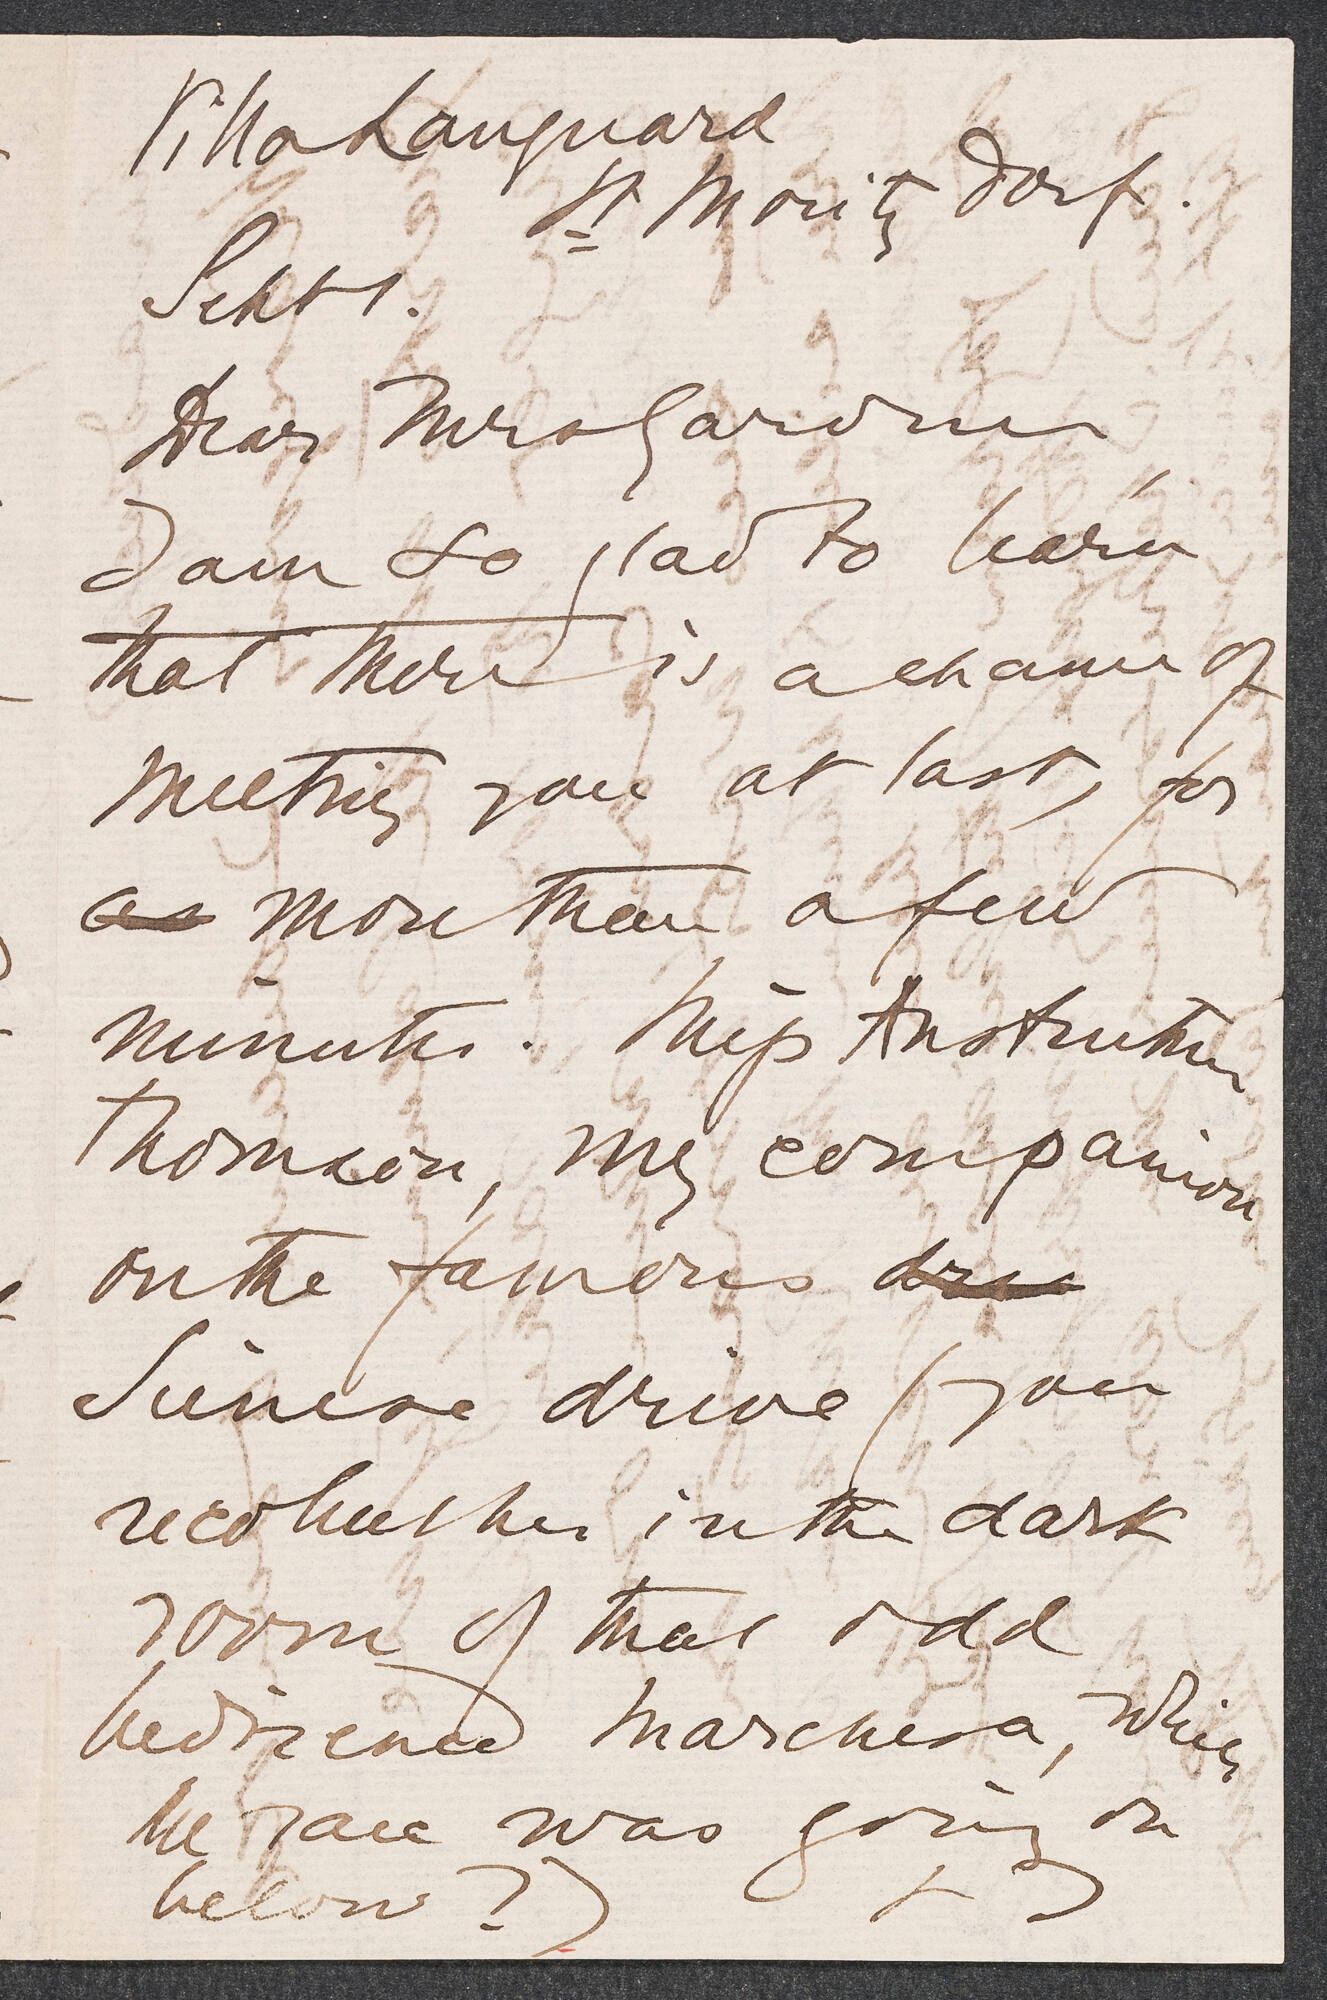 Villa Languard
St Moritz Dorf.
Sept 1.
Dear Mrs Gardner
I am so glad to learn
that there is a chance of
meeting you at last, for
as more than a few
minutes. Miss Anstruther
Thomson, my companion
on the famous
Sienese drive (you
recollect her in the dark
room of that odd
bedizened Marchesa, while
the race was going on
below?)